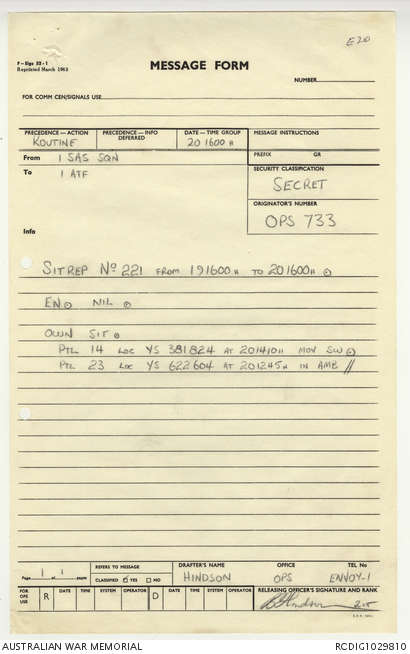 E20
F—Sigs 52-1
Reprinted March 1963
MESSAGE FORM
NUMBER
FOR COMM CEN/SIGNALS USE
PRECEDENCE — ACTION PRECEDENCE — INFO DEFERRED DATE — TIME GROUP MESSAGE INSTRUCTIONS
ROUTINE 201600H
From 1 SAS SQN PREFIX GR
To 1 ATF SECURITY CLASSIFICATION
SECRET
ORIGINATOR'S NUMBER
OPS 733
Info
SITREP No 221 FROM 191600H TO 201600H ⊙
EN⊙ NIL ⊙
OWN SIT ⊙
PTL 14 LOC YS 381824 AT 201410H MOV SW ⊙
PTL 23 LOC YS 622604 AT 201245H IN AMB //
Page 1 of 1 pages REFERS TO MESSAGE DRAFTER'S NAME OFFICE TEL No
CLASSIFIED ☑ YES ☐ NO HINDSON OPS ENVOY-1
FOR OPR USE R DATE TIME SYSTEM OPERATOR D DATE TIME SYSTEM OPERATOR RELEASING OFFICER'S SIGNATURE AND RANK
Hindson
AUSTRALIAN WAR MEMORIAL RCDIG1029810